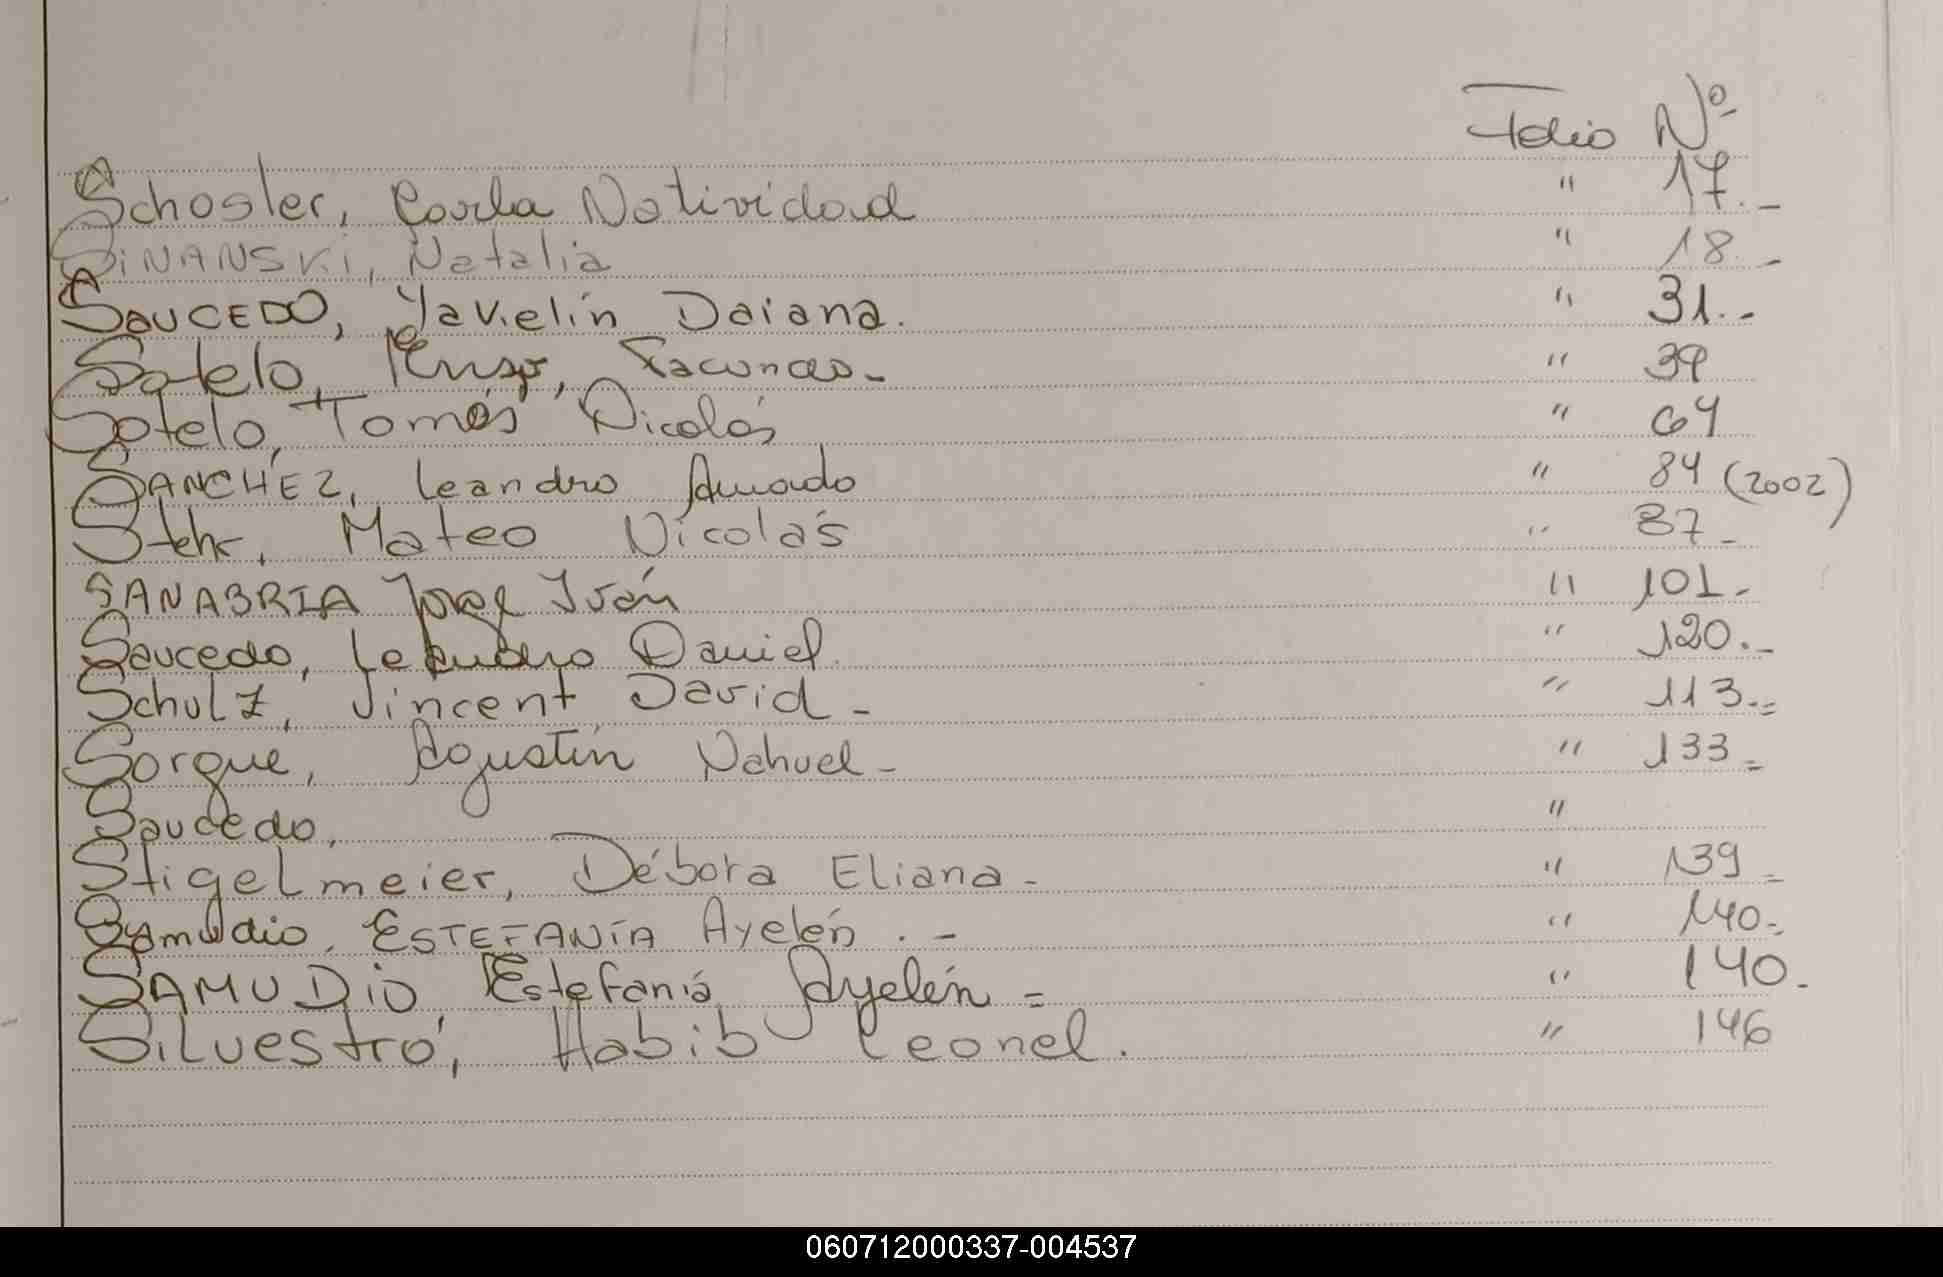 Folio Nº
Schosler, Carla Natividad " 17.-
SiNANSKi, Natalia " 18.-
SAUCEDO, Yavielin Daiana. " 31.-
Sotelo, Facundo.- " 39
Sotelo, Tomás Nicolás " 64
SANCHEZ, Leandro Amado " 84 (2002)
Stehr, Mateo Nicolás " 87-
SANABRIA Jorge Iván " 101-
Saucedo, Leandro Daniel " 120.-
Schulz, Vincent David - " 113.=
Sorgue, Agustín Nahuel - " 133=
Saucedo, "
Stigelmeier, Débora Eliana - " 139=
Samudio, ESTEFANÍA Ayelén . - " 140.=
SAMUDiO, Estefanía Ayelén = " 140.
Silvestro, Habib Leonel. " 146
060712000337-004537